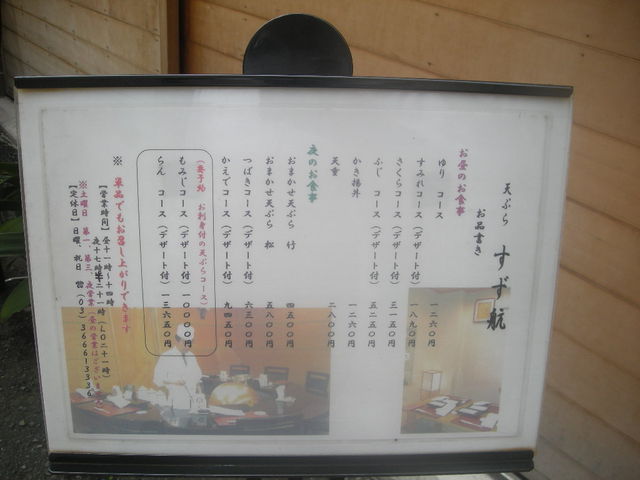 天ぷら すず航
お品書き
お昼のお食事
ゆり コース 一二六〇円
すみれコース (デザート付) 一八九〇円
さくらコース (デザート付) 三一五〇円
ふじ コース (デザート付) 五二五〇円
かき揚丼 一二六〇円
天重 二八〇〇円
夜のお食事
おまかせ天ぷら 竹 四五〇〇円
おまかせ天ぷら 松 五八〇〇円
つばきコース (デザート付) 六三〇〇円
かえでコース (デザート付) 九四五〇円
お刺身付の天ぷらコース)
もみじコース (デザート付) 一〇〇〇〇円
らん コース (デザート付) 一三六五〇円
※ 単品でもお召し上がりできます
【営業時間】 昼十一時〜十四時
夜十七時半〜二十一時 (LO二十一時)
※土曜日 第一、第三、夜営業 (昼の営業はございません)
【定休日】 日曜、祝日 ☎(03) 36661333６